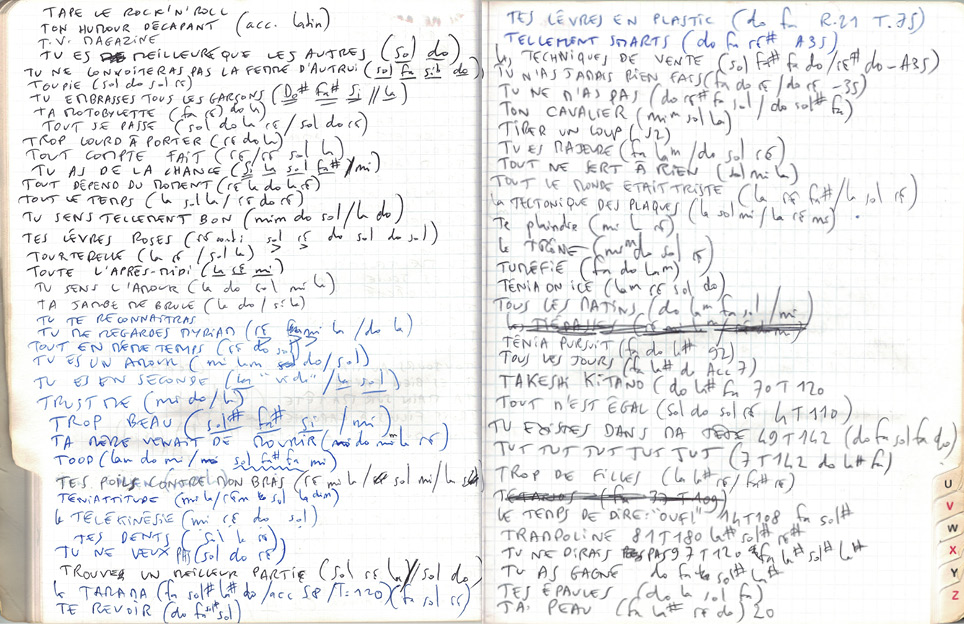 TAPE LE ROCK'N'ROLL
TON HUMOUR DÉCAPANT (acc. latin)
T.V. MAGAZINE
TU ES MEILLEURE QUE LES AUTRES (sol do)
TU NE CONVOITERAS PAS LA FEMME D'AUTRUI (sol fa sib do)
TOUPIE (sol do sol ré)
TU EMBRASSES TOUS LES GARÇONS (Do# fa# si // la)
TA MOTOBYLETTE (fa ré do la)
TOUT SE PASSE (sol do la ré / sol do ré)
TROP LOURD À PORTER (ré do la)
TOUT COMPTE FAIT (ré / ré sol la)
TU AS DE LA CHANCE (si la sol fa# / mi)
TOUT DÉPEND DU MOMENT (ré la do la ré)
TOUT LE TEMPS (la sol la / ré do ré)
TU SENS TELLEMENT BON (mim do sol / la do)
TES LÈVRES ROSES (ré sol ré do sol do sol)
TOURTERELLE (la ré / sol la)
TOUTE L'APRÈS-MIDI (la ré mi)
TU SENS L'AMOUR (la do mi la)
TA JAMBE ME BRÛLE (la do / si la)
TU TE RECONNAÎTRAS
TU ME REGARDES MYRIAM (ré mi la / do la)
TOUT EN MÊME TEMPS (ré do sol)
TU ES UN AMOUR (mi lam do / sol)
TU ES EN SECONDE (lam "vidé" / la sol)
TRUST ME (mi do / la)
TROP BEAU (sol# fa# si / mi)
TA MÈRE VENAIT DE MOURIR (mi do mim la ré)
TOOD (lam do mi / mi sol fa# fa mi)
TES POILS CONTRE MON BRAS (ré mi la / sol mi / la)
TÉNIATTITUDE (mi la / sol)
la TÉLÉKINÉSIE (mi ré do sol)
TES DENTS (sol la ré)
TU NE VEUX PAS (sol do ré)
TROUVER UN MEILLEUR PARTIE (sol ré la / sol do)
le TARAMA (fa sol# la# do / acc 58 / T=120) (fa sol ré)
TE REVOIR (do fa# sol)
TES LÈVRES EN PLASTIC (do fa R.21 T.75)
TELLEMENT SMARTS (do fa ré# A35)
les TECHNIQUES DE VENTE (sol fa# fa do / ré# do - A35)
TU N'AS JAMAIS RIEN FAIS (fa do ré / do ré - 35)
TU NE M'AS PAS (do ré# fa sol / do sol# fa)
TON CAVALIER (mim sol la)
TIRER UN LOUP (52)
TU ES MAJEURE (fa lam / do sol ré)
TOUT NE SERT À RIEN (sol mi la)
TOUT LE MONDE ÉTAIT TRISTE (la ré fa# / la sol ré)
la TECTONIQUE DES PLAQUES (la sol mi / la ré mi)
Te plaindre (mi la ré)
le TRÔNE (mim do sol ré)
TUMÉFIÉ (fa do lam)
TÉNIA ON ICE (lam ré sol do)
TOUS LES MATINS (do lam fa sol / mi)
TÉNIA PURSUIT (fa do la# 92)
TOUS LES JOURS (fa la# do Acc 7)
TAKESHI KITANO (do la# fa 70 T 120
TOUT M'EST ÉGAL (sol do sol ré 4 T 110)
TU EXISTES DANS MA TÊTE 49 T 142 (do fa sol fa do)
TUT TUT TUT TUT TUT TUT (7 T 142 do la# fa)
TROP DE FILLES (la la# ré / fa ré)
LE TEMPS DE DIRE: "OUF!" 14 T 108 fa sol#
TRAMPOLINE 81 T 180 la# sol# ré#
TU NE DIRAIS PAS 97 T 120 fa la# sol# la#
TU AS GAGNÉ do fa sol# la#
TES ÉPAULES (do la sol fa)
TA PEAU (fa la# ré do) 20
U
V
W
X
Y
Z